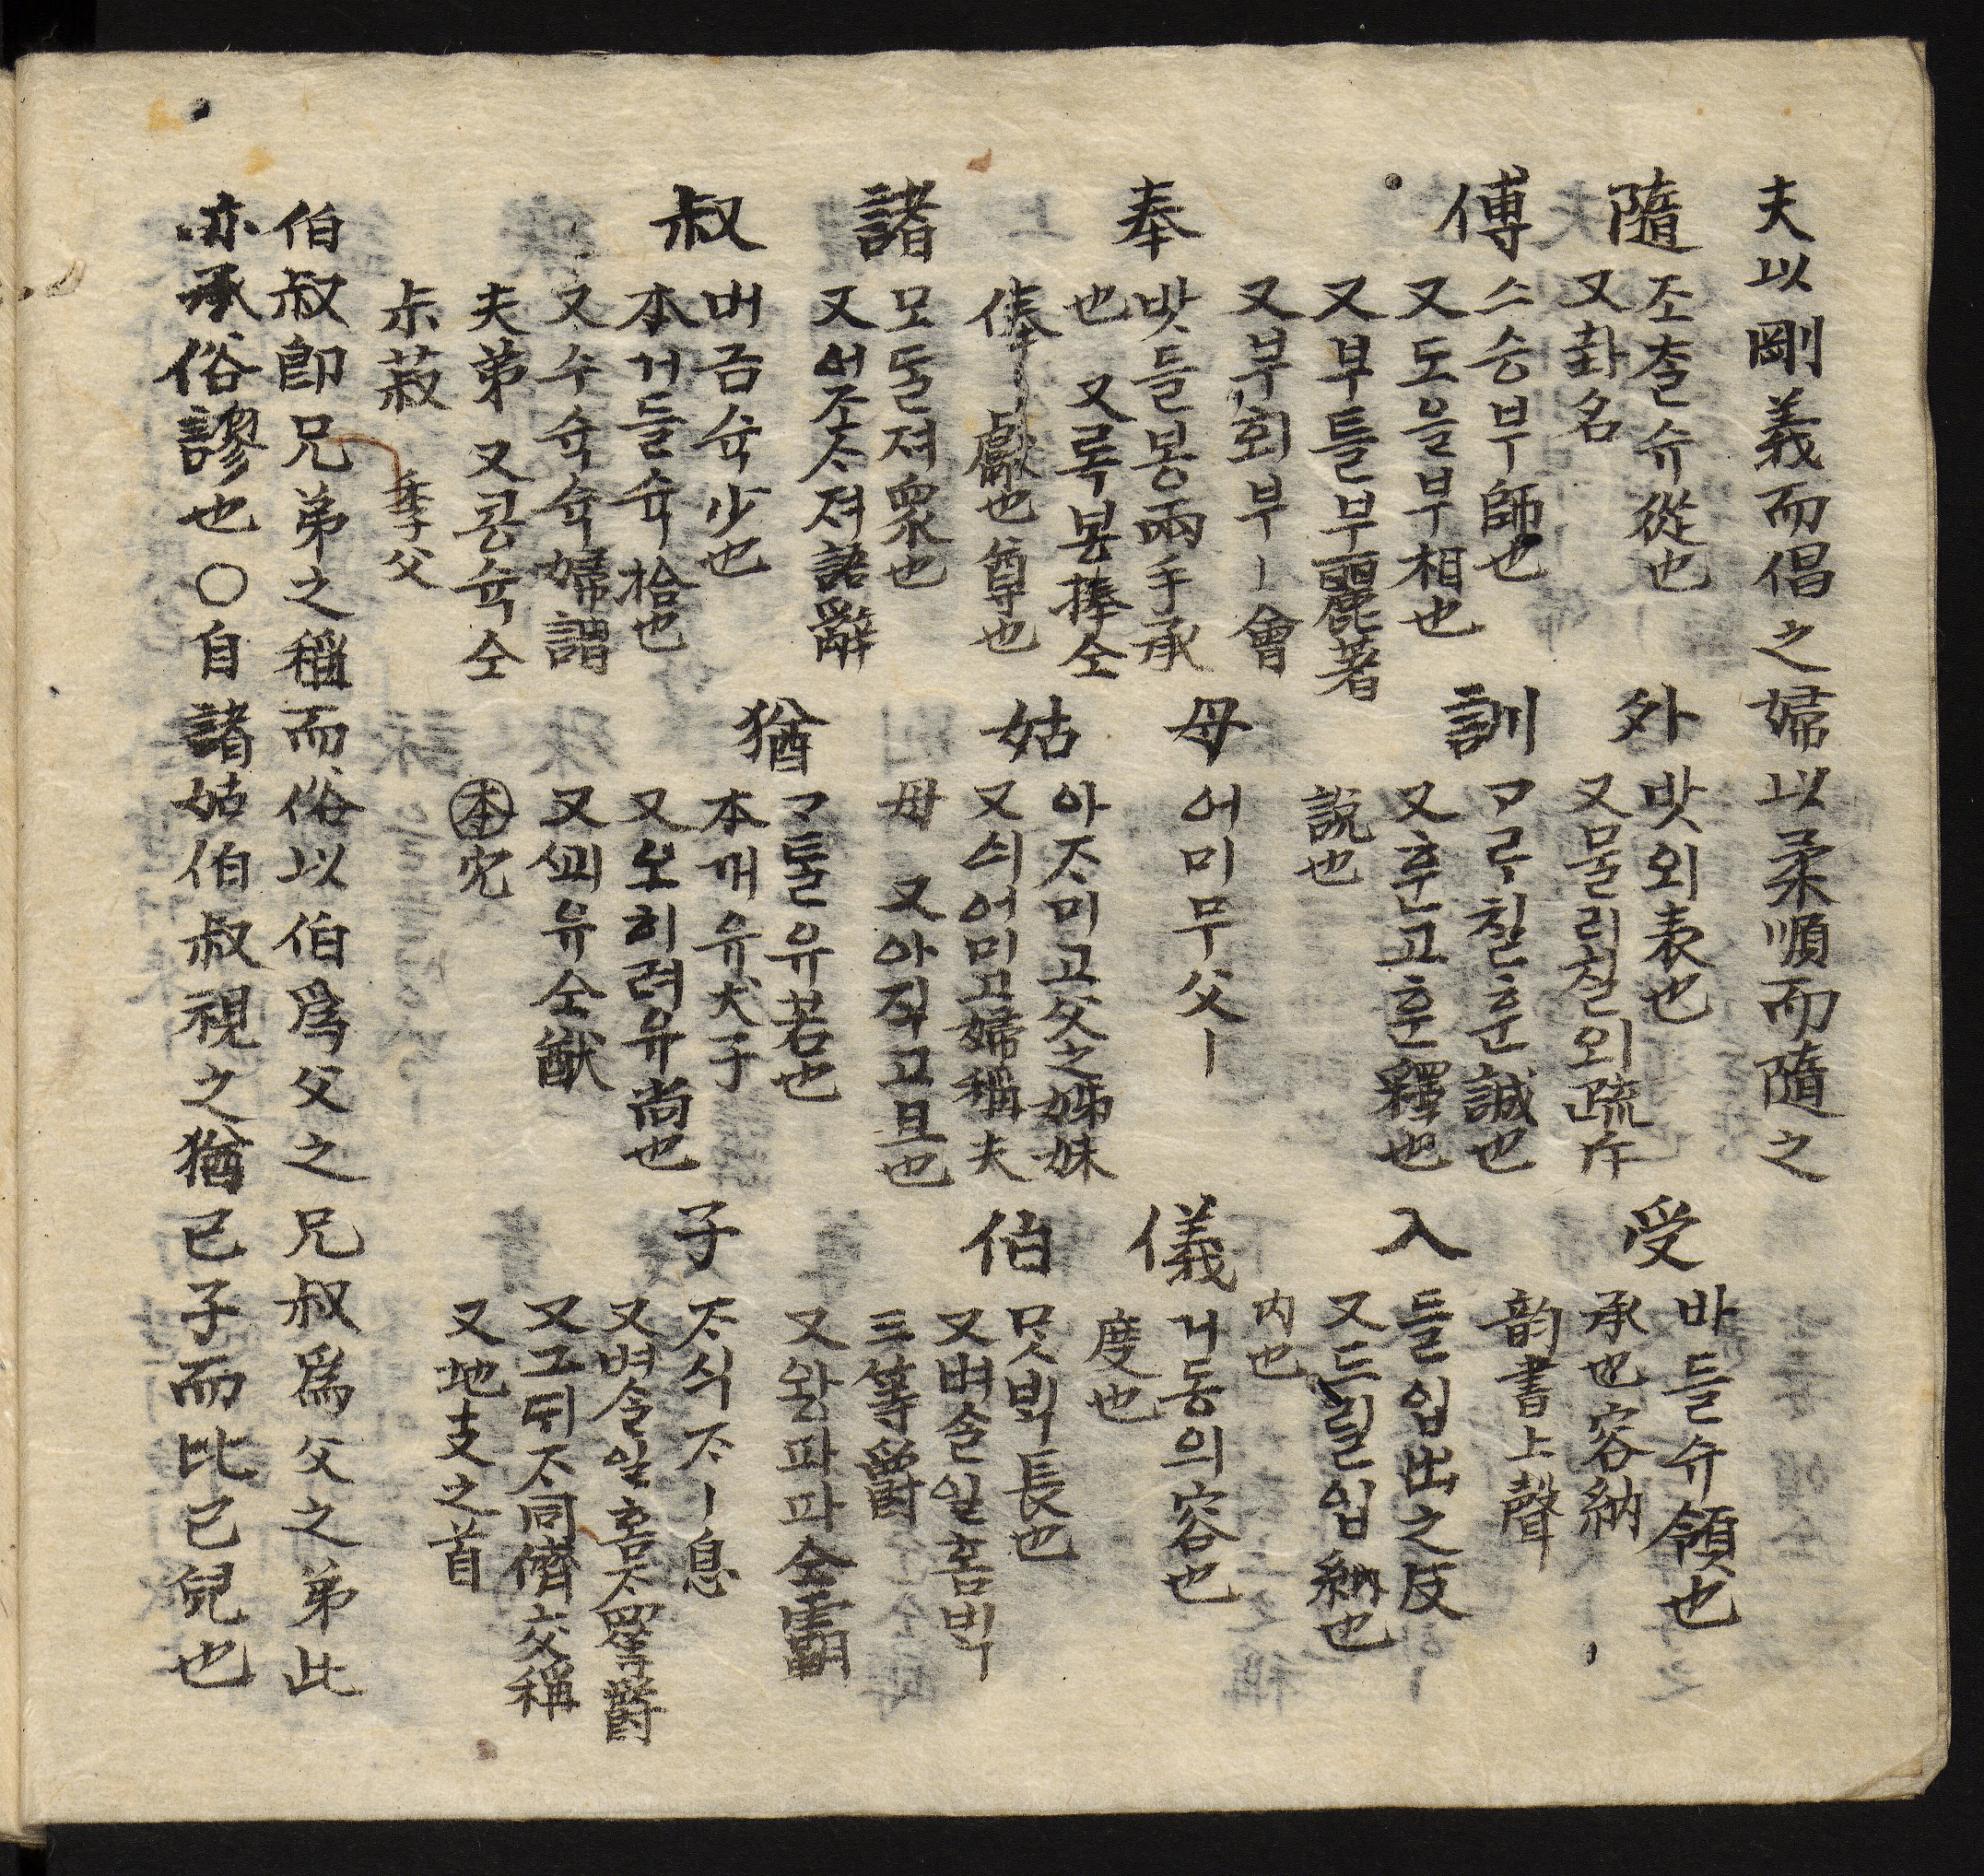 夫以剛義而倡之婦以柔順而隨之
隨
조ᄎᆞᆯ슈從也
又卦名
外
밧외表也
又물리칠외疏斥
受
바들슈領也
承也容納
韵書上聲
傅
스승부師也
又도을부相也
又부틀부麗著
又부회부ㅣ會
訓
ᄀᆞᄅᆞ칠훈誡也
又훈고훈釋也
說也
入
들입出之反
又드릴입納也
内也
奉
밧들봉兩手承
也 又록봉捧仝
俸 獻也尊也
母
어미무父ㅣ
儀
거동의容也
度也
諸
모둘져衆也
又어조ᄉᆞ져語辭
姑
아ᄌᆞ미고父之姊妹
又싀어미고婦稱夫
母 又아직고且也
伯
ᄆᆞᆺᄇᆡᆨ長也
又벼ᄉᆞᆯ일홈ᄇᆡᆨ
三等爵
又왇파파仝霸
叔
버금슉少也
本거들슉拾也
又수슉슉婦謂
夫弟 又콩슉仝
尗菽 季父
猶
ᄀᆞᄐᆞᆯ유若也
本개유犬子
又오히려유尚也
又ᄭᅬ유仝猷
本
子
ᄌᆞ식ᄌᆞㅣ息
又벼ᄉᆞᆯ일홈ᄌᆞ四等爵
又그ᄃᆡᄌᆞ同儕交稱
又地支之首
伯叔卽兄弟之稱而俗以伯爲父之兄叔爲父之弟此
亦承俗謬也○自諸姑伯叔視之猶己子而比己兒也